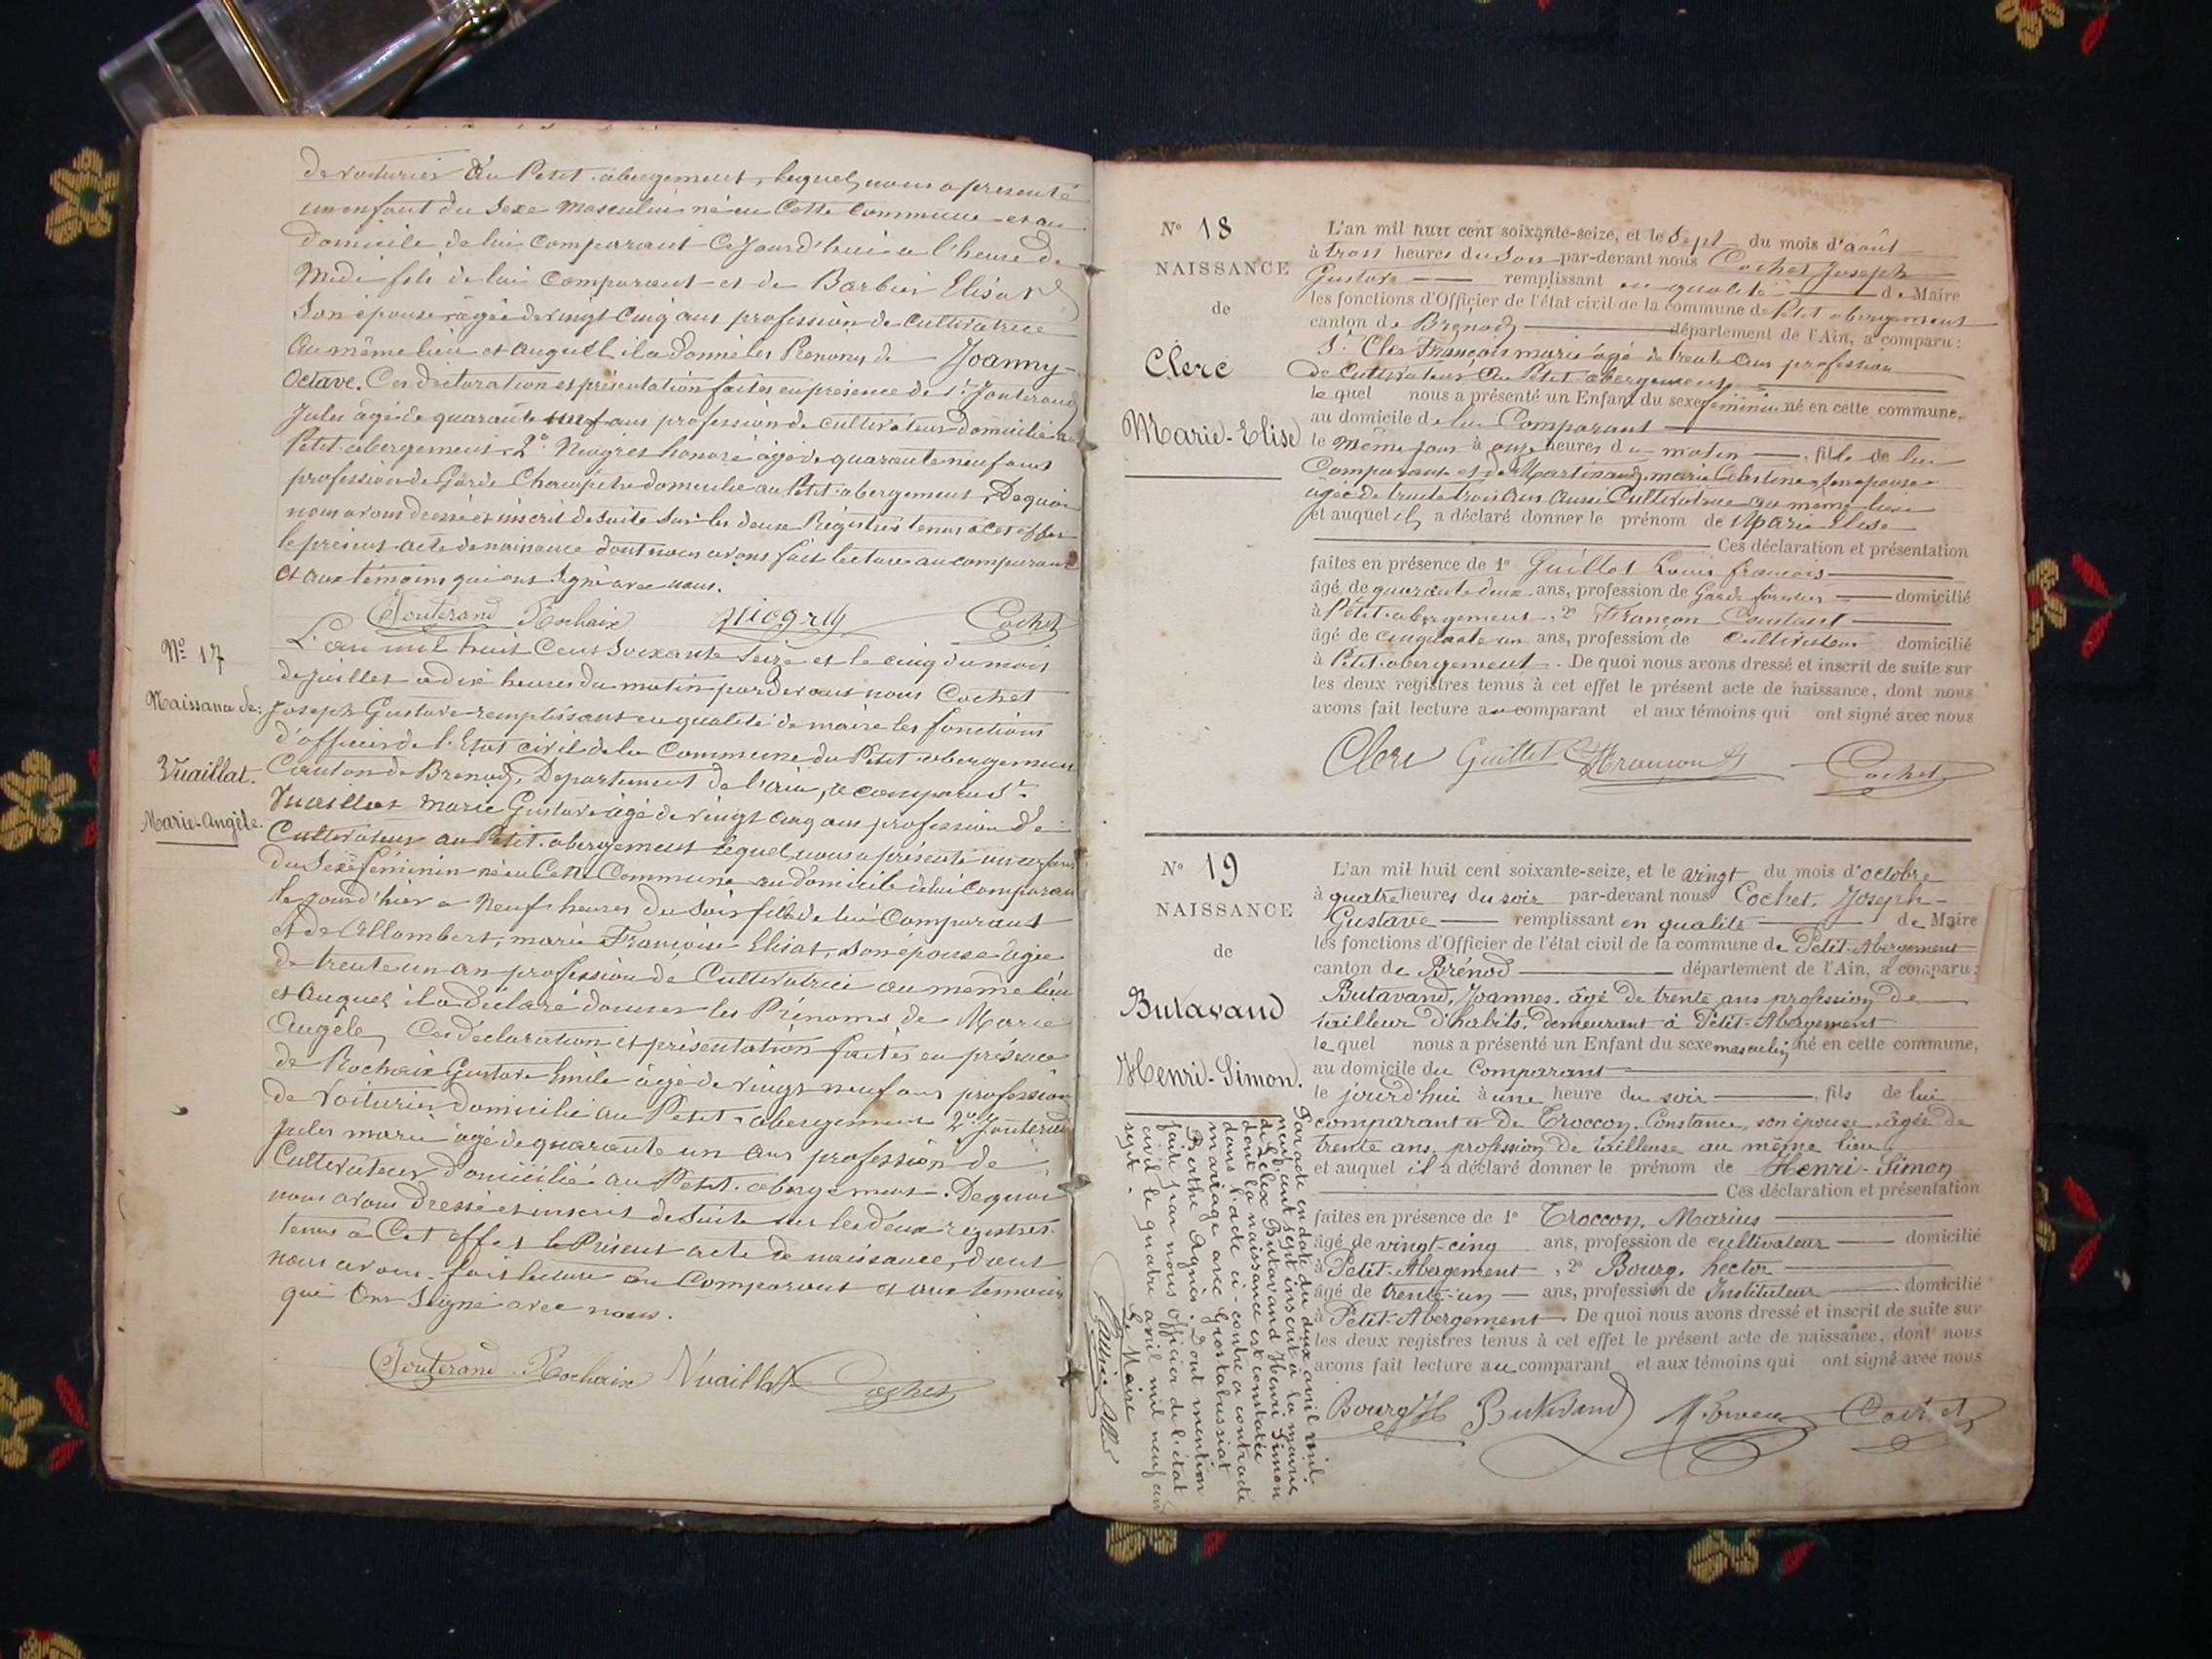 de voiturier au Petit-abergement, lequel nous a presenté
un enfant du Sexe Masculin né en Cette Commune et au
domicile de lui Comparant Cejourd'hui a l'heure de
Midi fils de lui Comparant et de Barbier Elisa
Son épouse âgée de vingt Cinq ans profession de Cultivatrice
Au même lieu et auquel il a donné les Prenoms de Joanny-
Octave. Ces declaration et présentation faites en présence de 1° Jouterand
Jules âgé de quarante ans profession de cultivateur domicilié au
Petit-abergement 2° Niogret honoré âgé de quarante neuf ans
profession de Garde Champêtre domicilié au Petit-abergement, De quoi
nous avons dressé et inscrit de suite Sur les deux Régistres tenus a cet effet
le présent acte de naissance dont nous avons fait lecture au comparant
et aux témoins qui ont Signé avec nous.
Jouterand Rochaix Niogret Cochet
N° 17
Naissance de:
Vuaillat.
Marie-Angèle.
L'an mil huit Cent Soixante Seize et le cinq du mois
de juillet a dix heures du matin pardevant nous Cochet
Joseph Gustave remplissant en qualité de maire les fonctions
d'officier de l'Etat civil de la Commune du Petit abergement
Canton de Brenod, Departement de l'ain, a comparu St
Vuaillat Marie Gustave âgé de vingt cinq ans profession de
Cultivateur au Petit-abergement lequel nous a présenté un enfant
du Sexe féminin né en Cette Commune au domicile de lui Comparant
le jourd'hier a Neuf heures du Soir fille de lui Comparant
et de Allombert, marie Françoise Elisat, son épouse âgée
de trente un an profession de Cultivatrice au même lieu
et Auquel il a déclaré donner les Prénoms de Marie
Angèle, Ces déclaration et présentation faites en présence
de Rochaix Gustave Emile âgé de vingt neuf ans profession
de Voiturier domicilié au Petit-abergement 2° Jouterand
Jules marie âgé de quarante un ans profession de
Cultivateur domicilié au Petit-abergement. De quoi
nous avons dressé et inscrit de Suite sur les deux registres
tenus a Cet effet le Présent acte de naissance, dont
nous avons fait lecture au Comparant et aux temoins
qui Ont Signé avec nous.
Jouterand Rochaix Vuaillat Cochet
N° 18
NAISSANCE
de
Clerc
Marie-Elise
L'an mil huit cent soixante-seize, et le Sept du mois d'août
à trois heures du Soir par-devant nous Cochet Joseph
Gustave remplissant en qualité de Maire
les fonctions d'Officier de l'état civil de la commune de Petit abergement
canton de Brenod département de l'Ain, a comparu:
St Clerc François marie âgé de trente ans profession
de Cultivateur Au Petit-abergement
lequel nous a présenté un Enfant du sexe féminin né en cette commune,
au domicile de lui Comparant
le Même jour à onze heures du matin, fille de lui
Comparant et de Martinand, marie Celestine, son épouse
âgée de trente trois ans aussi Cultivatrice au même lieu
et auquel il a déclaré donner le prénom de Marie Elise
Ces déclaration et présentation
faites en présence de 1° Guillot Louis françois
âgé de quarante deux ans, profession de Garde forestier domicilié
à Petit-abergement, 2° Françon Constant
âgé de cinquante un ans, profession de Cultivateur domicilié
à Petit-abergement. De quoi nous avons dressé et inscrit de suite sur
les deux registres tenus à cet effet le présent acte de naissance, dont nous
avons fait lecture au comparant et aux témoins qui ont signé avec nous
Clerc Guillot Françon Cochet
N° 19
NAISSANCE
de
Butavand
Henri-Simon.
L'an mil huit cent soixante-seize, et le vingt du mois d'octobre
à quatre heures du soir par-devant nous Cochet, Joseph-
Gustave remplissant en qualité de Maire
les fonctions d'Officier de l'état civil de la commune de Petit-Abergement
canton de Brénod département de l'Ain, a comparu:
Butavand, Joannes, âgé de trente ans profession de
tailleur d'habits, demeurant à Petit-Abergement
lequel nous a présenté un Enfant du sexe masculin né en cette commune,
au domicile du Comparant
le jourd'hui à une heure du soir, fils de lui
comparant et de Troccon, Constance, son épouse, âgée de
trente ans, profession de tailleuse au même lieu
et auquel il a déclaré donner le prénom de Henri-Simon
Ces déclaration et présentation
faites en présence de 1° Troccon, Marius
âgé de vingt-cinq ans, profession de cultivateur domicilié
à Petit-Abergement, 2° Bourg, hector
âgé de trente-un ans, profession de Instituteur domicilié
à Petit-Abergement. De quoi nous avons dressé et inscrit de suite sur
les deux registres tenus à cet effet le présent acte de naissance, dont nous
avons fait lecture au comparant et aux témoins qui ont signé avec nous
Bourg H Butavand Cochet
Par acte en date du deux avril mil
neuf cent sept inscrit à la mairie
de Lélex Butavand Henri Simon
dont la naissance est constatée
dans l'acte ci-contre a contracté
mariage avec Grostabussiat
Berthe Agnès. Dont mention
faite par nous officier de l'état
civil le quatre avril mil neuf cent
sept.
Le Maire